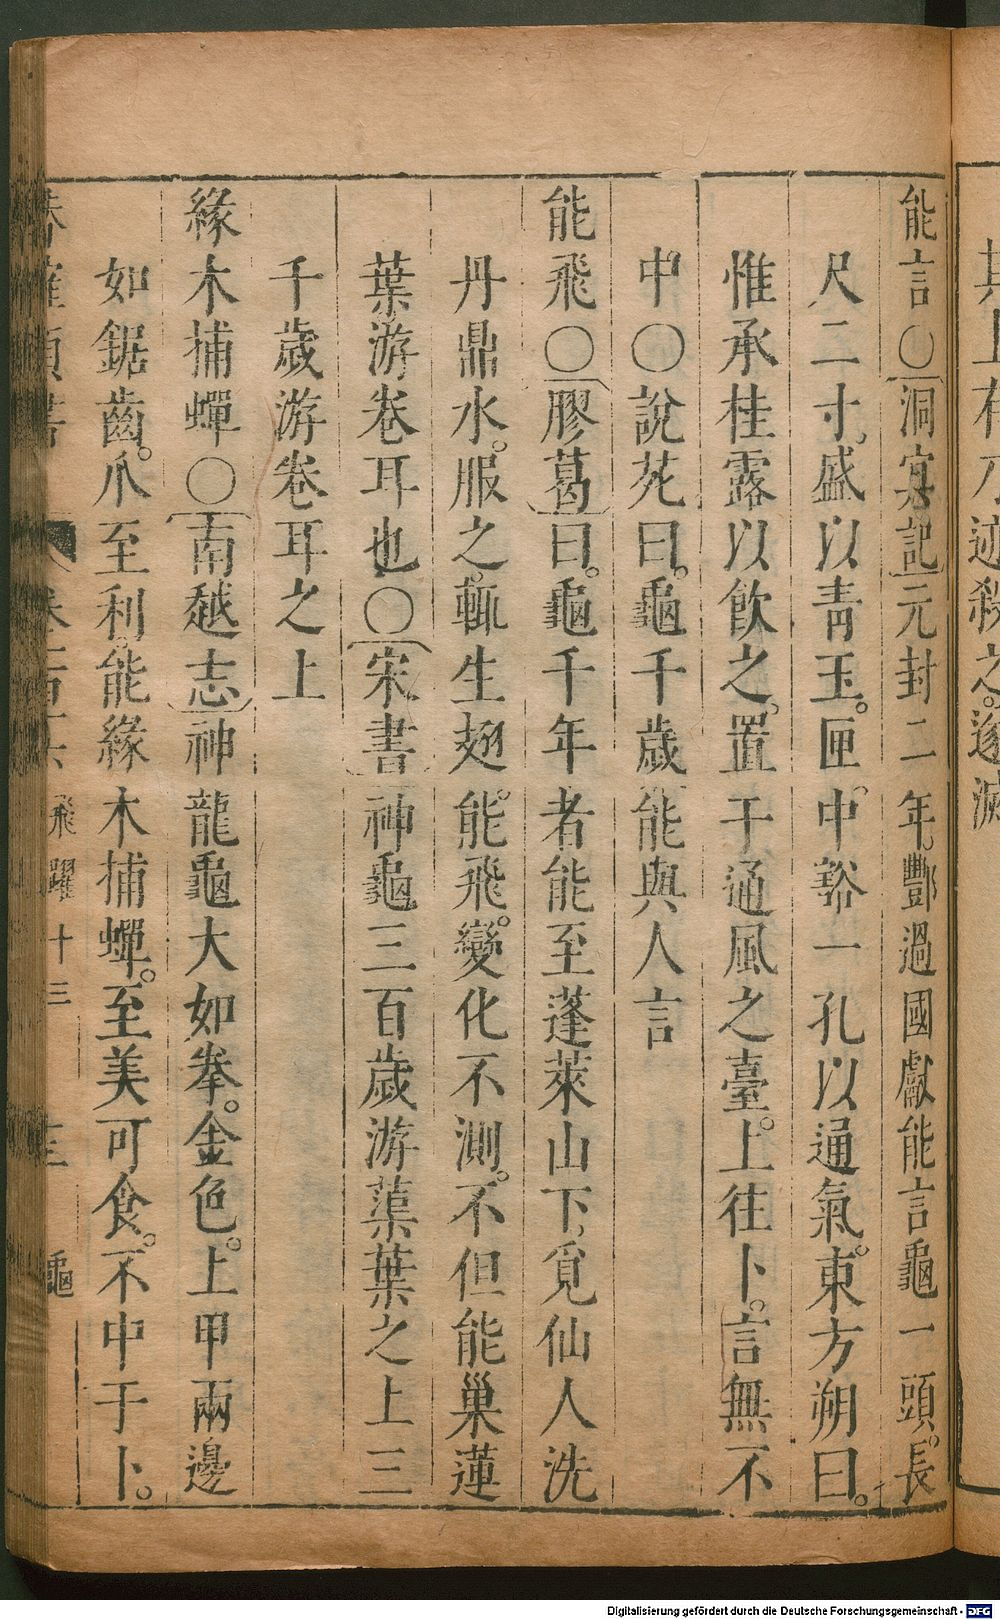 能言○洞㝠記元封二年。酆過國獻能言龜一頭。長
尺二寸。盛以靑玉。匣。中豁一孔以通氣。東方朔曰。
惟承桂露以飮之。置于通風之臺。上往卜。言無不
中○說苑曰。龜千歲能與人言
能飛○膠葛曰。龜千年者能至蓬萊山下。覓仙人洗
丹鼎水。服之。輒生翅。能飛。變化不測。不但能巢蓮
葉游卷耳也○宋書神龜三百歲游蕖葉之上三
千歲游卷耳之上
緣木捕蟬○南越志神龍龜大如拳。金色。上甲兩邊
如鋸齒。爪至利。能緣木捕蟬。至美可食。不中于卜。
飛躍十三
龜
其上有刀迹殺之。遂滅
Digitalisierung gefördert durch die Deutsche Forschungsgemeinschaft - DFG